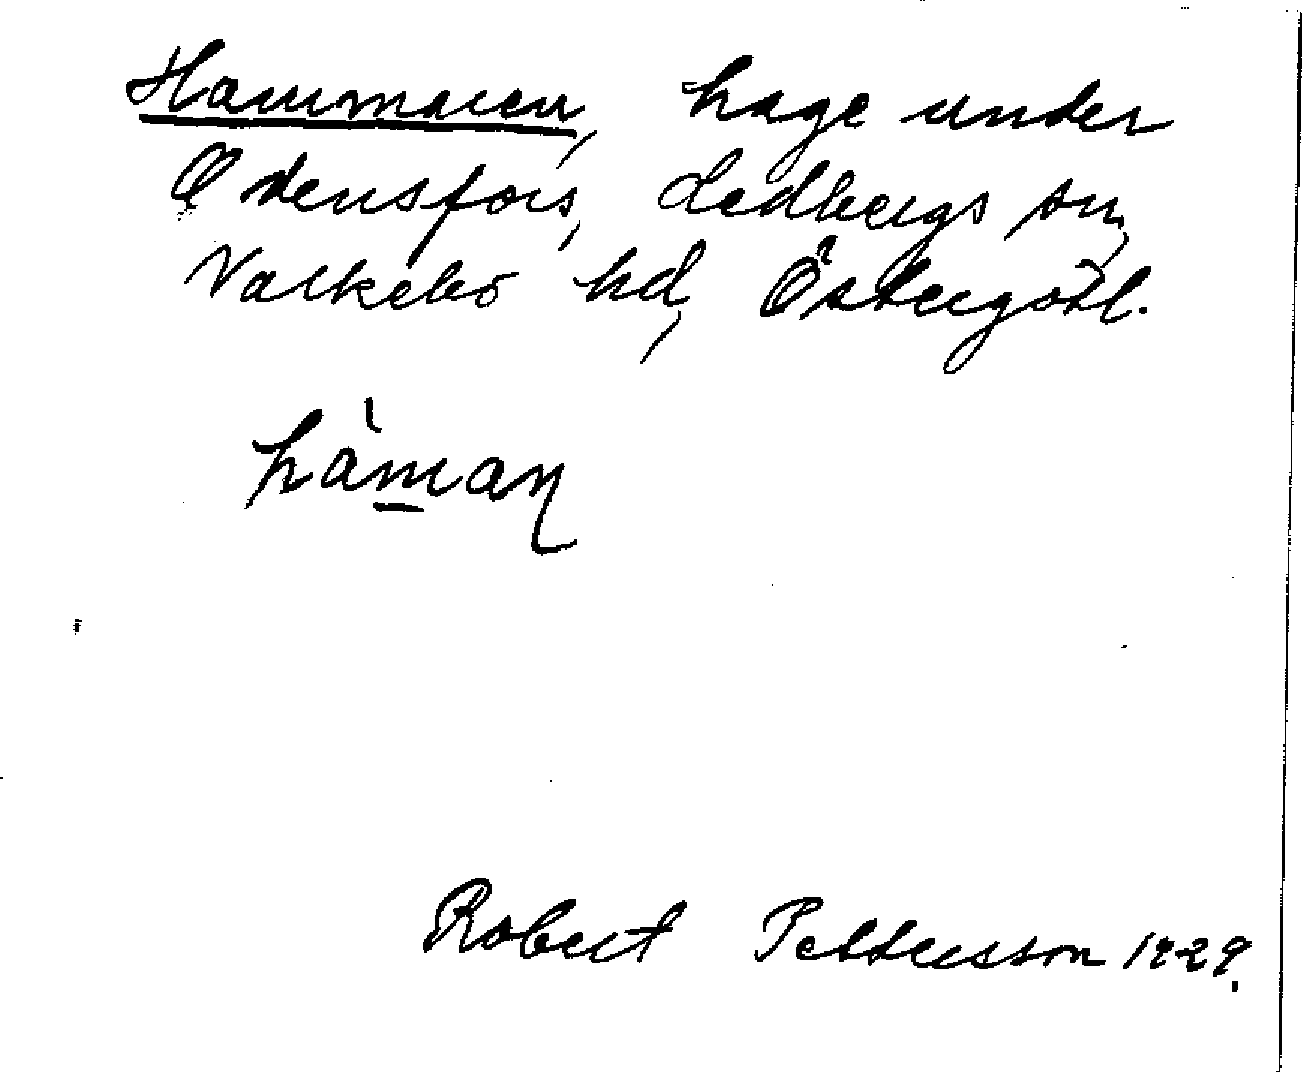 Hammaren, hage under
Odensfors, Ledbergs sn,
Valkebo hd, Östergötl.
hàman
Robert Pettersson 1929.